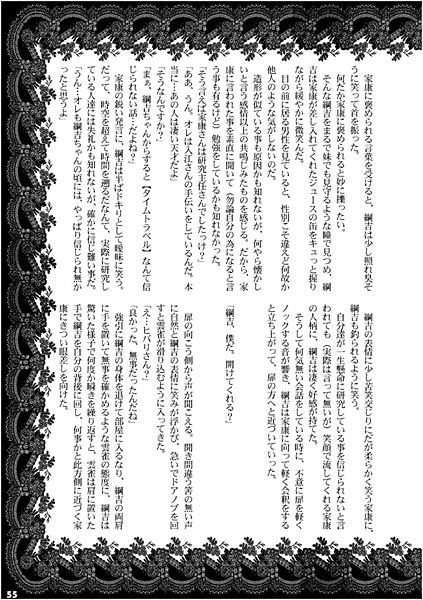 家康に褒められる言葉を受けると、綱吉は少し照れ臭そ
うに笑って首を振った。
何だか家康に褒められると妙に擽ったい。
そんな綱吉をまるで妹でも見守るような瞳で見つめ、綱
吉は家康が差し入れてくれたジュースの缶をキュっと握り
ながら緩やかに微笑んだ。
目の前に居る男性を見ていると、性別こそ違えど何故か
他人のような気がしないのだ。
造形が似ている事も原因かも知れないが、何やら懐かし
いと言う感情以上の共鳴じみたものを感じる。だから、家
康に言われた事を素直に聞いて（勿論自分の為になると言
う事も有るけど）勉強をしているかも知れなかった。
「そう言えば家康さんは研究主任さんでしたっけ？」
「ああ、うん。オレは入江さんの手伝いをしているんだ。本
当に…あの人は凄い天才だよ」
「そうなんですか？」
「まぁ、綱吉ちゃんからすると【タイムトラベル】なんて信
じられない話…だよね？」
家康の鋭い発言に、綱吉は半ばドキリとして曖昧に笑う。
だって、時空を超えて時間を遡るだなんて、実際に研究し
ている人達には失礼かも知れないが、確かに信じ難い事だ。
「うん…オレも綱吉ちゃんの頃には、やっぱり信じられ無か
ったと思うよ」
綱吉の表情に少し苦笑交じりにだが柔らかく笑う家康に、
綱吉も釣られるように笑う。
自分達が一生懸命に研究している事を信じられないと言
われても（実際は言って無いが）笑顔で流してくれる家康
の人柄に、綱吉は凄く好感が持てた。
そうして何気無い会話をしている時に、不意に扉を軽く
ノックする音が響き、綱吉は家康に向って軽く会釈をする
と立ち上がって、扉の方へと近づいていった。
「綱吉、僕だ。開けてくれる？」
扉の向こう側から声が聞こえる。聞き間違う筈の無い声
に自然と綱吉の表情に笑みが浮かび、急いでドアノブを回
すと雲雀が滑り込むように入ってきた。
「え？ヒバリさん？」
「良かった、無事だったんだね」
強引に綱吉の身体を退けて部屋に入るなり、綱吉の両肩
に手を置いて無事を確かめるような雲雀の態度に、綱吉は
驚いた様子で何度か瞬きを繰り返すと、雲雀は肩に置いた
手で綱吉を自分の背後に回し、何事かと此方側に近づく家
康にきつい眼差しを向けた。
55